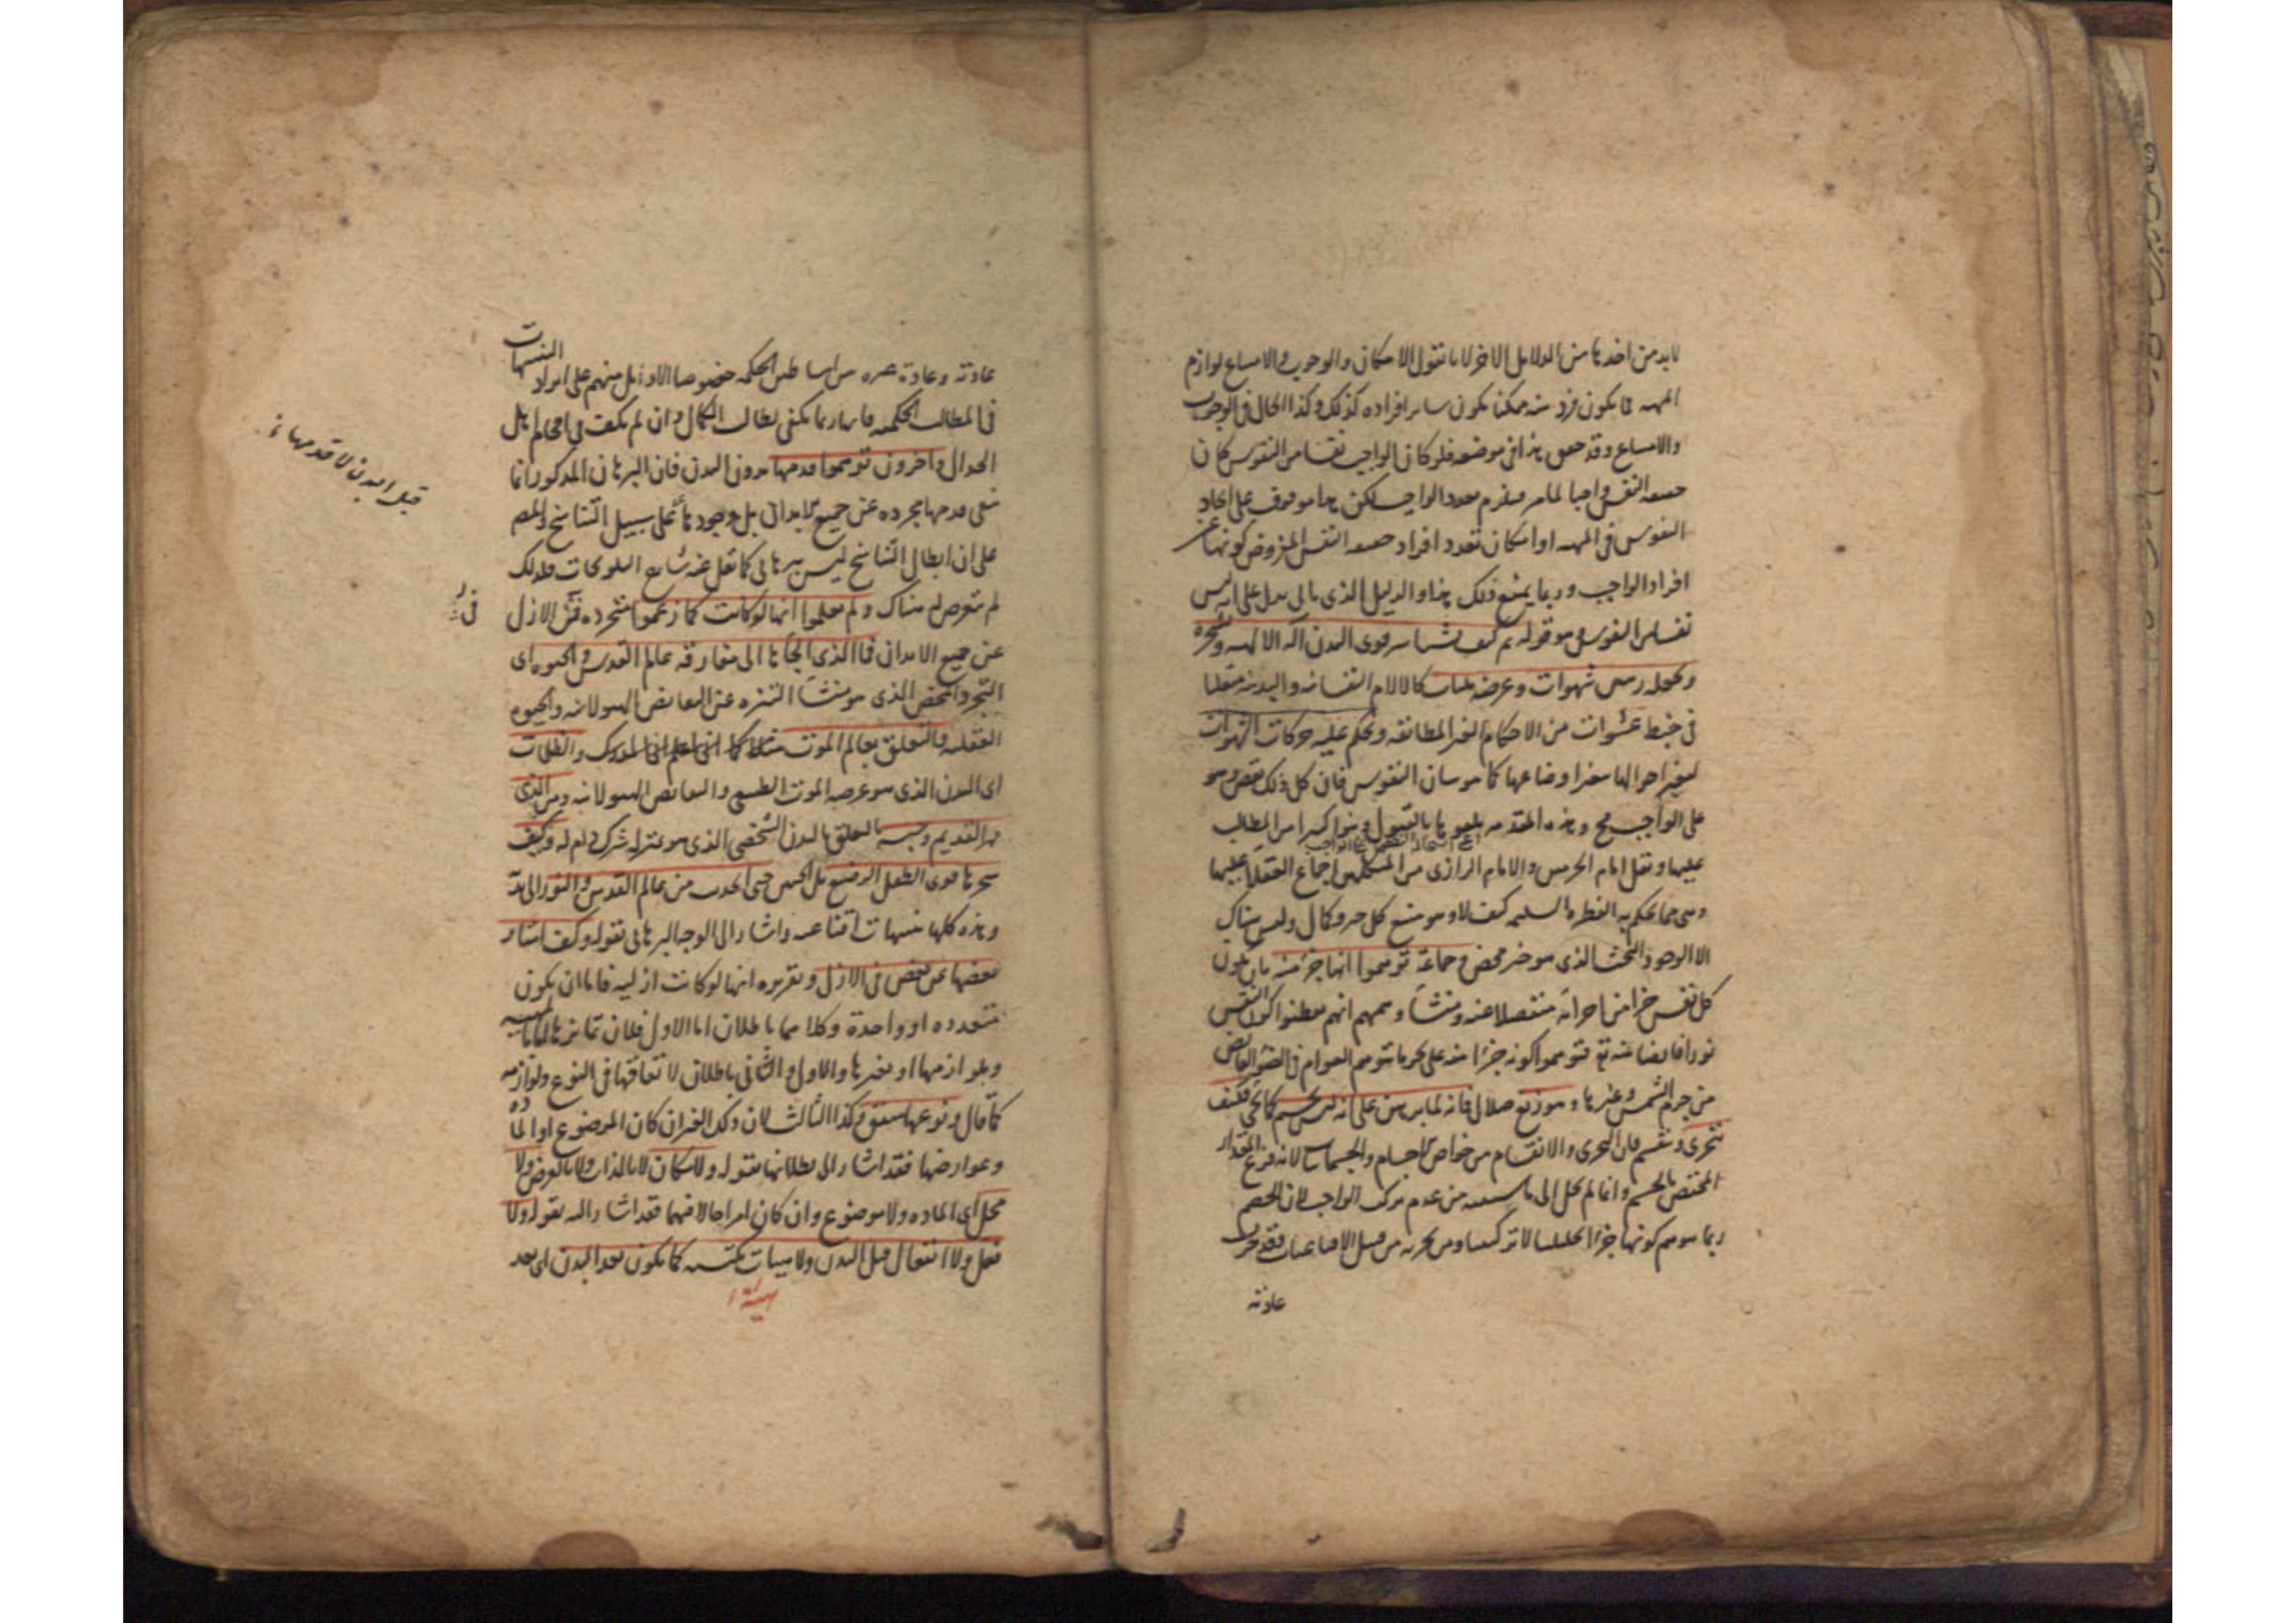 لابد من اخذها من الدلايل الاخر لانا نقول الامكان والوجوب والامتناع لوازم
المهيه فما يكون فرد منه ممكنا يكون ساير افراده كذلك وكذا الحال فى الوجوب
والامتناع وقد حقق هذا فى موضعه فلو كان الواجب نفسا من النفوس كان
حقيقة النفس واجبا لما مر فيلزم تعدد الواجب لكن هذا موقوف على اتحاد
النفوس فى المهيه او امكان تعدد افراد حقيقة النفس المفروض كونها عن
افراد الواجب وربما يمنع ذلك هذا والدليل الذى ياتى يدل على انه ليس
نفسا من النفوس وهو قوله ثم كيف قوى البدن اله الالهيه وسخره
شهوات وعرضه بليات كالالام النفسانيه والبدنيه متقلبا
فى خبط عشوات من الاحكام الغير المطابقه ويحكم عليه حركات السموات
لتغير احوالها بتغير اوضاعها كما هو شان النفوس فان كل ذلك نقص وهو
على الواجب مح وهذه المقدمه بالقبول وبنوا كثيرا من المطالب
عليها ونقل امام الحرمين والامام الرازى من المتكلمين اجماع العقلا عليها
وهى مما يحكم به الفطره السليمه كيف لا وهو منبع كل خير وكمال وليس هناك
الا الوجود البحث الذى هو خير محض وجماعة توهموا انها جزء منه بان يكون
كل نفس جزا من اجزائه منفصلا عنه ومنشأ وهمهم انهم كون النفس
نورا فايضا منه تع فتوهموا كونه جزءا منه على نحو ما يتوهم العوام فى الضوء الفايض
من جرم الشمس وغيرها وهو زيغ وضلال فانه لما برهن على انه ليس بجسم كما يجئ فكيف
يتجزى وينقسم فان التجزى والانقسام من خواص الاجسام والجسمانيات لانه فرع المقدار
المختص بالجسم وانما لم يحل الى ما سبق من عدم تركب الواجب لان الخصم
ربما يتوهم كونها جزءا تحليليا لا تركيبيا ومن يجزيه من قبيل الاقناعيات فقد جرت
عادته
عادته وعادة غيره من اساطين الحكمة خصوصا الاوايل منهم على ايراد التنبيهات
فى المطالب الحكميه فانها ربما يكفى لطالب الكمال وان لم يكف فى افحام اهل
الجدال واخرون توهموا قدمها بدون البدن فان البرهان المذكور انما
ينفى قدمها مجرده عن جميع الابدان بل وجودها على سبيل التناسخ
على ان ابطال التناسخ ليس ببرهانى كما نقل عنه شارح التلويحات
لم يتعرض له هناك ولم يعلموا انها لو كانت كما زعموا متجرده فى الازل
عن جميع الابدان فما الذى الجأها الى مفارقه عالم القدس والحيوه اى
التجرد المحض الذى هو منشأ التنزه عن النقايص الهيولانيه والحيوه
العقليه والتعلق بعالم الموت والظلمات
اى البدن الذى هو عرضه الموت الطبيعى والنقايص الهيولانيه ومن الذى
قهر القديم وحبسه بالتعلق بالبدن الشخصى الذى هو بمنزله شرك له وكيف
سخرها قوى الطفل الرضيع بل الجنين حتى انجذبت من عالم القدس والنور اليه
وهذه كلها تنبيهات اقناعيه واشار الى الوجه البرهانى بقوله وكيف امتاز
بعضها عن بعض فى الازل وتقريره انها لو كانت ازليه فاما ان يكون
متعدده او واحدة وكلاهما باطلان اما الاول فلان تمايزها اما بالمهيه
وبلوازمها او بغيرها والاول والثانى باطلان لاتفاقها فى النوع ولوازمه
كما قال ونوعها متفق وكذا الثالث لان ذلك الغير ان كان الموضوع او الماده
وعوارضها فقد اشار الى بطلانها بقوله ولا مكان لا بالذات ولا بالعرض ولا
محل اى الماده ولا موضوع وان كان امرا حالا فيها فقد اشار اليه بقوله ولا
فعل ولا انفعال قبل البدن ولا هيات مكتسبه كما يكون بعد البدن اى بعد
قبل البدن لا قدمها